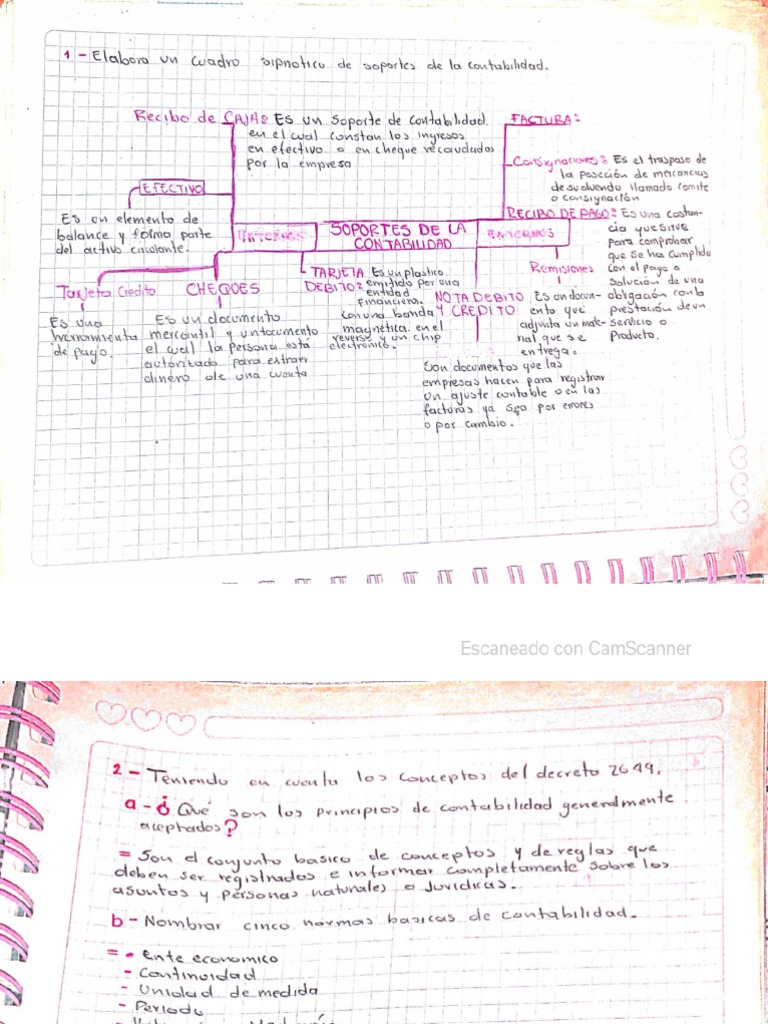 1 - Elabora un cuadro sipnotico de soportes de la contabilidad.
Recibo de CAJA: Es un soporte de contabilidad.
en el cual constan los ingresos
en efectivo o en cheque recaudados
por la empresa
FACTURA:
Consignaciones: Es el traspaso de
la posección de mercancias
desvolvendo llamado comite
o consignación
EFECTIVO
Es un elemento de
balance y forma parte
del activo circulante.
SOPORTES DE LA
CONTABILIDAD
RECIBO DE PAGO: Es una costan-
cia que sirve
para comprobar
que se ha cumplido
con el pago o
solución de una
obligación con la
prestación de un
servicio o
producto.
Tarjeta Credito
Es una
herramienta
de pago.
CHEQUES
Es un documento
mercantil y un tocumento
el cual la persona está
autoritado para extraer
dinero de una cuenta
TARJETA DEBITO: Es un plastico
emitido por una
entidad
financiera.
con una banda
magnética en el
reverse y un chip
electrónico.
NOTA DEBITO
Y CREDITO
Son documentos que las
empresas hacen para registrar
un ajuste contable o en las
facturas ya sea por errores
o por cambio.
Remisiones
Es un docum-
ento que
adjunta un mate-
rial que se
entrega.
Escaneado con CamScanner
2 - Teniendo en cuenta los conceptos del decreto 2649.
a - ¿Qué son los principios de contabilidad generalmente
aceptados?
= Son el conjunto basico de conceptos y de reglas que
deben ser registrados e informar completamente sobre los
asuntos y personas naturales o Juridicas.
b - Nombrar cinco normas basicas de contabilidad.
= - Ente economico
- Continuidad
- Unidad de medida
- Periodo